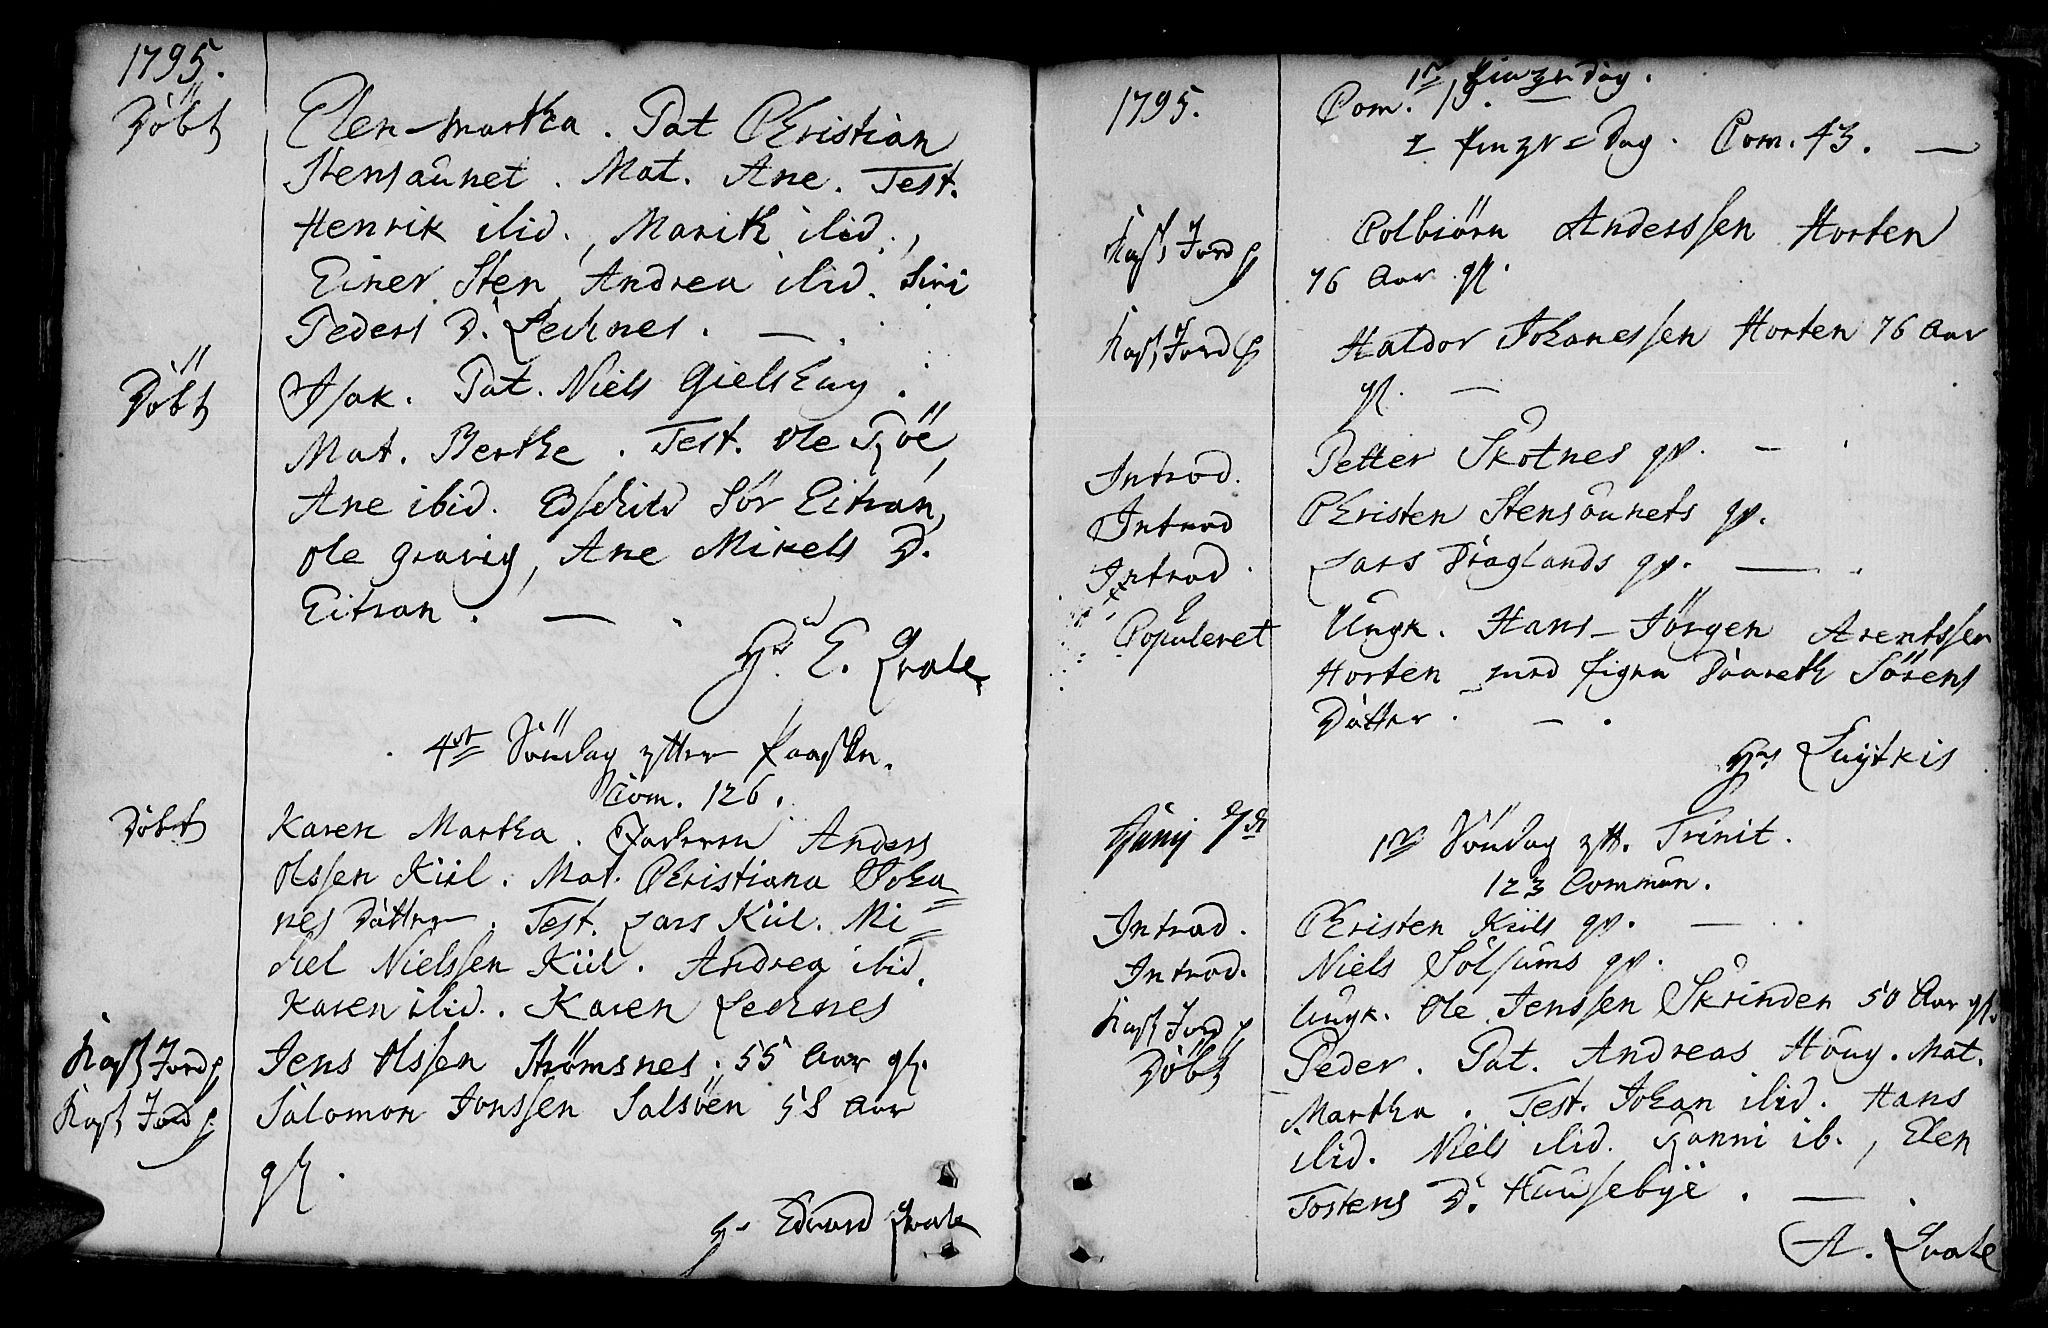 1795.
Döbt
Elen-Martha. Pat Christian
Stensaunet. Mat. Ane. Test.
Henrik ibid., Marith ibid.,
Einer Sten, Andrea ibid. Siri
Peders D. Lechnes. —
Döbt
Isak. Pat. Niels Gielshuy.
Mat. Berthe. Test. Ole
Ane ibid. Edschild Sör Eitran,
Ole Gravig, Ane Mikels D.
Eitran. —
Hr E. Qvale
4de Söndag efter Paasken.
Com. 126.
Döbt
Karen Martha. Faderen Anders
Olssen Kiil. Mat. Christiana Joha=
nes Datter. Test. Lars Kiil. Mi=
chel Nielssen Kiil. Andrea ibid.
Karen ibid. Karen Lechnes
Kast Jord p
Jens Olssen Strømsnes. 55 Aar gl.
Kast Jord p
Salomon Jonssen Salsöen 58 Aar
gl.
Hr Edvard Qvale
1795.
1ste Pinze Dag.
Com. 19. —
2 Pinze=Dag. Com. 43. —
Kast Jord p
Colbiörn Anderssen Horten
76 Aar gl.
Kast Jord p
Haldor Johanessen Horten 76 Aar
gl. —
Introd.
Petter Skotnes qv. —
Introd
Christen Stensaunets qv.
Introd.
Lars Draglands qv. —
Copuleret
Ungk. Hans-Jörgen Arentssen
Horten med Pigen Mareth Sörens
Datter. —
Hr Luytkis
Junij 7de
1ste Söndag eft. Trinit.
123 Commun.
Introd.
Christen Kiils qv. —
Introd.
Niels Solsums qv.
Kast Jord p
Ungk. Ole Jenssen Skrinden 50 Aar gl.
Döbt
Peder. Pat. Andreas Houg. Mat.
Martha. Test. Johan ibid. Hans
ibid. Niels ibid. Ranni ib., Elen
Tostens D. Huusebye. —
A. Qvale